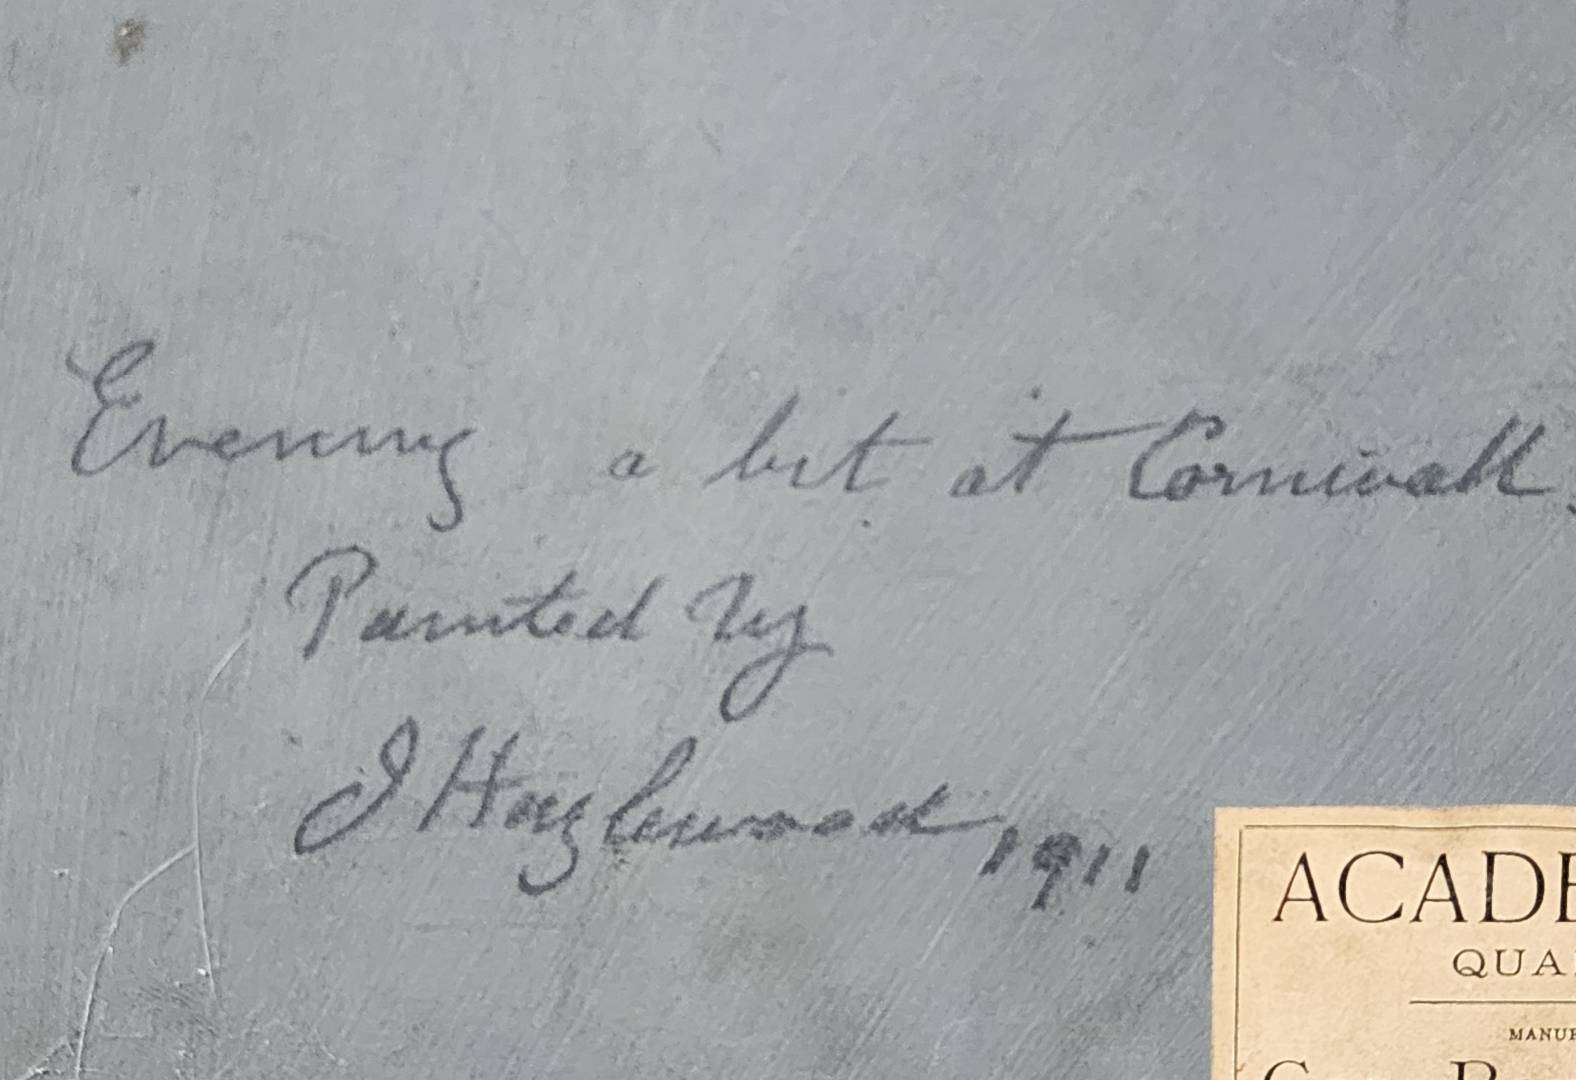 Evening a bit at Cornwall.
Painted by
J Hazlewood, 1911
ACADE
QUA
MANUF